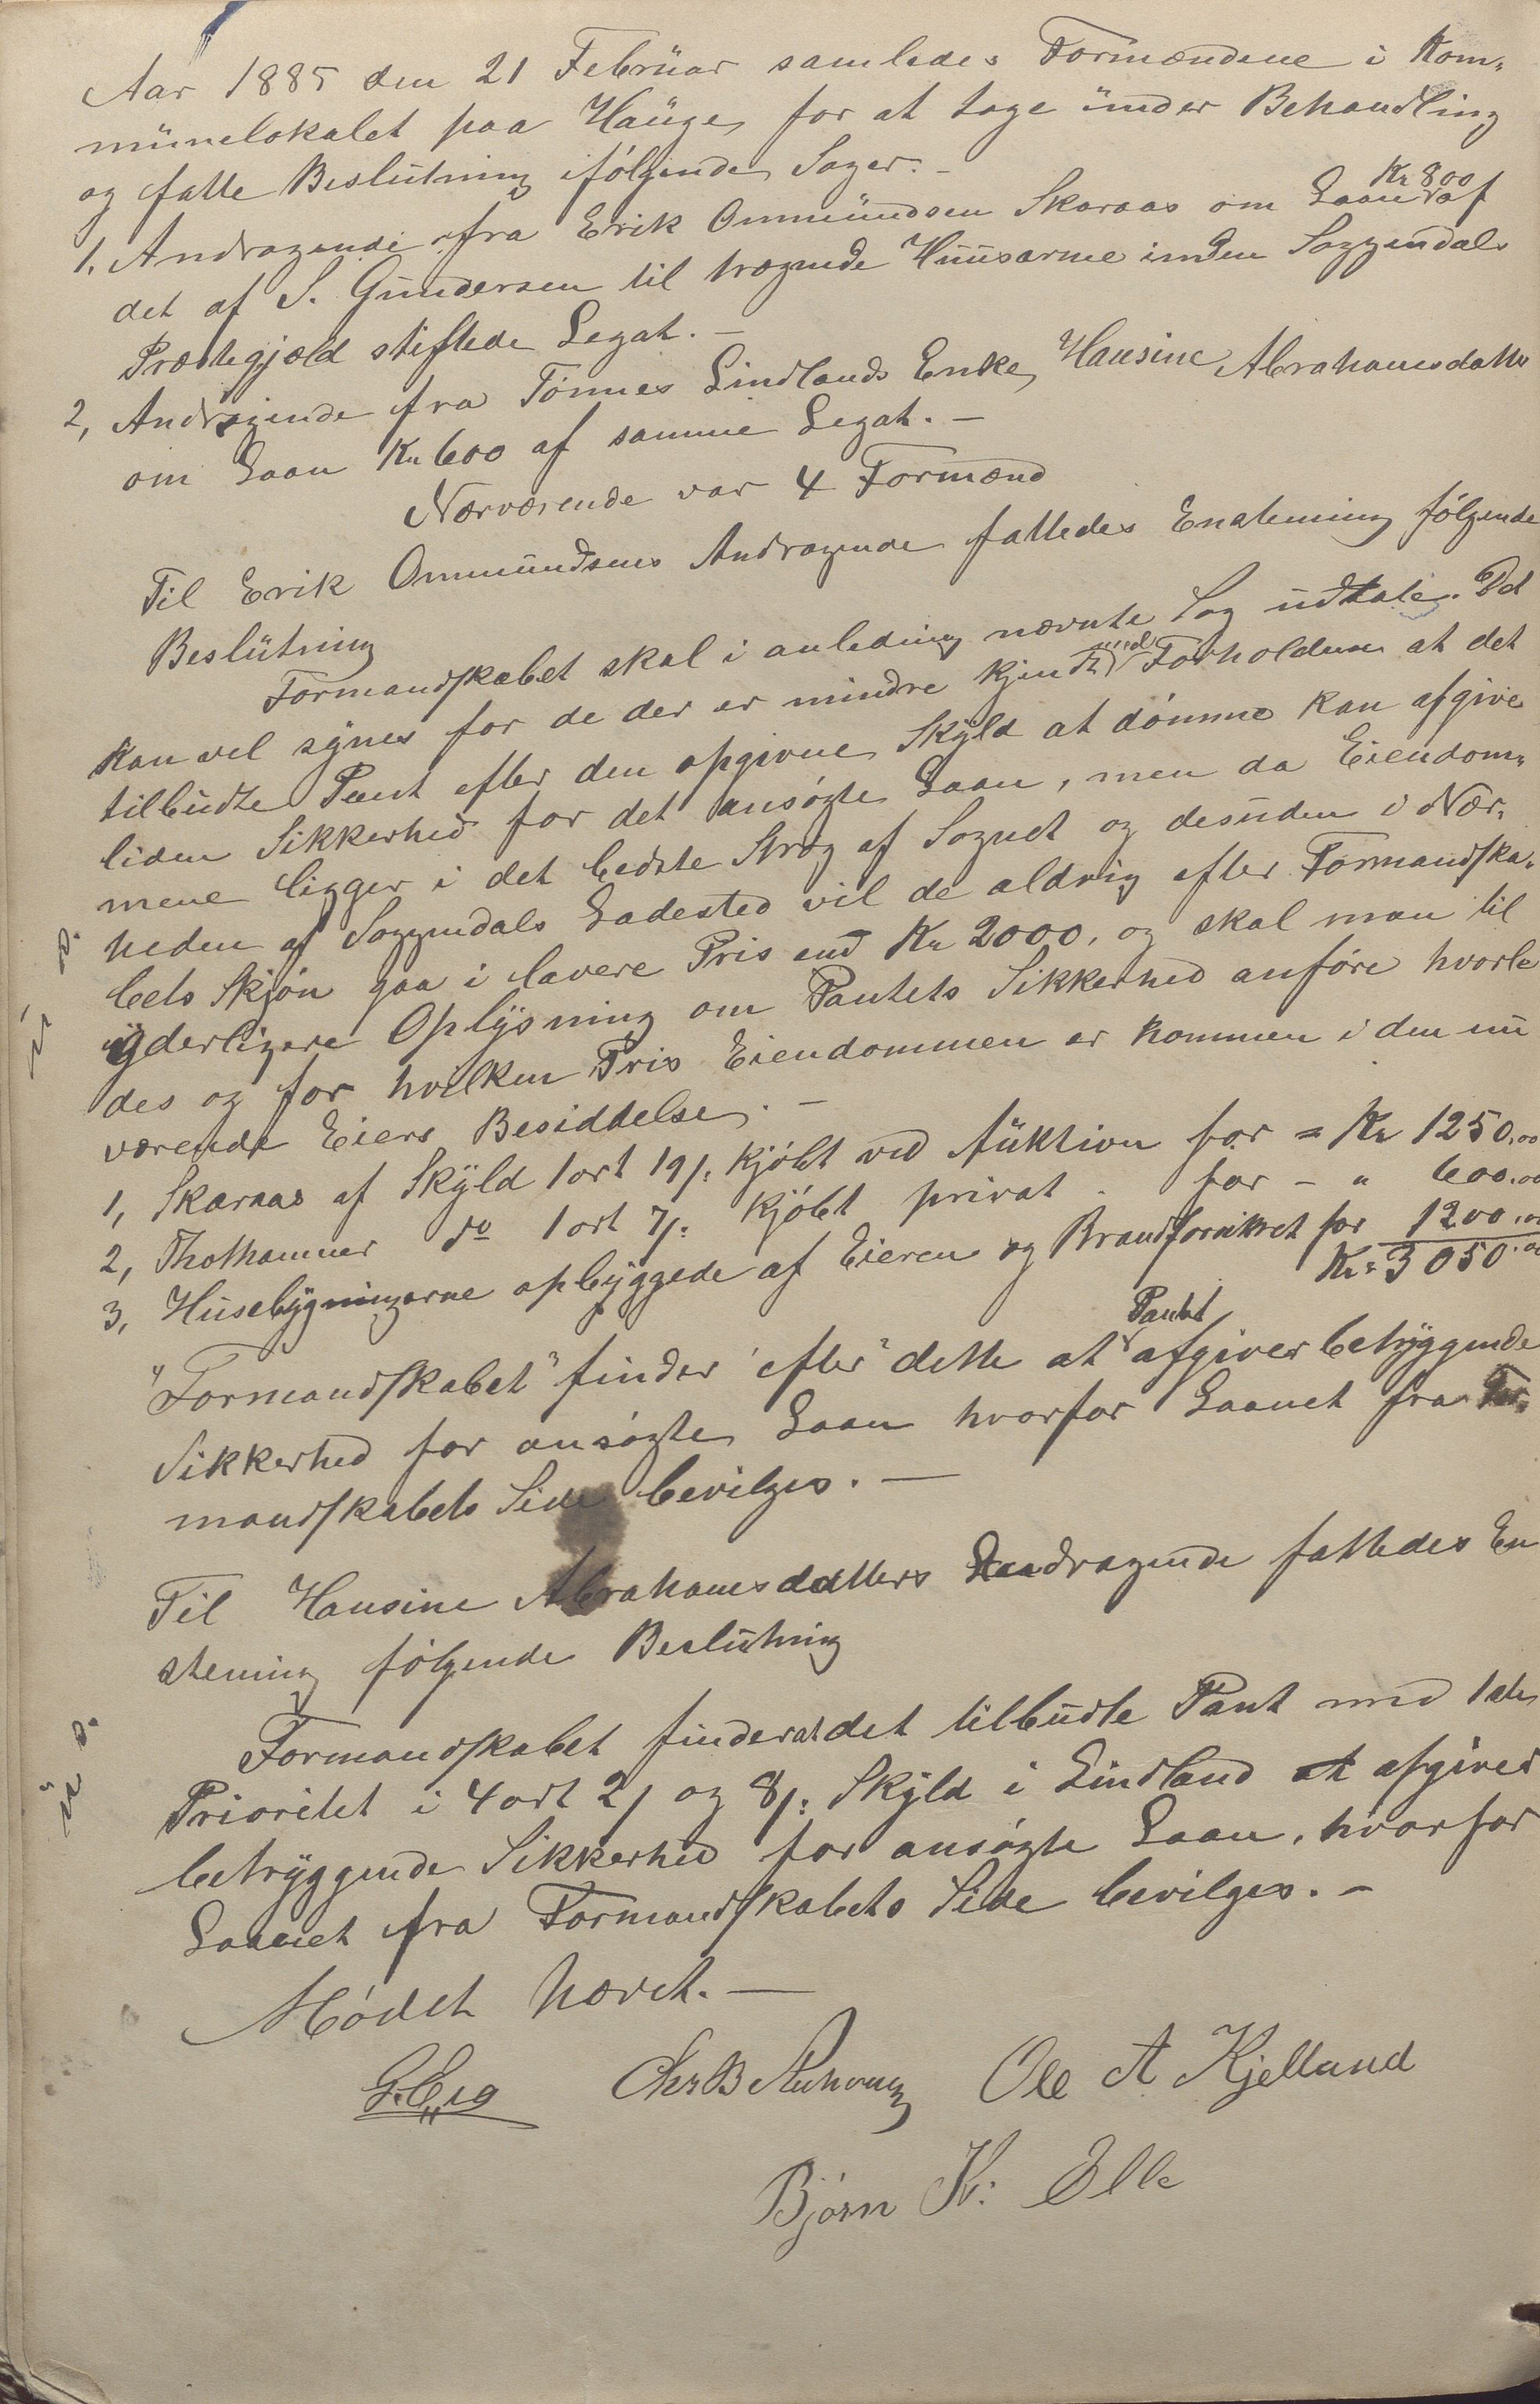 Aar 1885 den 21 Februar samledes Formændene i Kom-
munelokalet paa Hauge, for at tage under Behandling
og fatte Beslutning ifølgende Sager.-
1. Andragende fra Erik Ommundsen Skaraas om Laan Kr 800 af
det af S. Gundersen til trægende Huusarme inden Soggendals
Præstegjæld stiftede Legat.-
2, Andragende fra Tønnes Lindlands Enke, Hansine Abrahamsdatter
om Laan Kr 600 af samme Legat.-
Nærværende var 4 Formænd
Til Erik Ommundsens Andragende fattedes Enstemmig følgende
Beslutning
Formandskabet skal i anleding nævnte Sag udtale. Det
kan vel synes for de der er mindre kjendt med Forholdene at det
tilbudte Pant efter den opgivne Skyld at dømme kan afgive
liden Sikkerhed for det ansøgte Laan, men da Eiendom-
mene ligger i det bedste Strøg af Sognet og desuden i Nær-
heden af Soggendals Ladested vil de aldrig efter Formandska-
bets Skjøn gaa i lavere Pris end Kr 2000, og skal man til
yderligere Oplysning om Pantets Sikkerhed anføre hvorle
des og for hvilken Pris Eiendommen er kommen i den nu
værende Eiers Besiddelse.-
1, Skaraas af Skyld 1 ort 19/: kjøbt ved Auktion for = Kr 1250.00
2, Thothammer do 1 ort 7/: kjøbt privat. for - " 600.00
3, Husebygningerne opbyggede af Eieren og Brandforsikret for 1200.00
Kr= 3050.00
"Formandskabet" finder efter dette at Pantet afgiver betryggende
Sikkerhed for ansøgte Laan hvorfor Laanet fra For-
mandskabets Side bevilges.-
Til Hansine Abrahamsdatters Andragende fattedes En
stemig følgende Beslutning
Formandskabet finder at det tilbudte Pant med 1ste
Prioritet i 4 ort 2/ og 8/: Skyld i Lindland at afgiver
betryggende Sikkerhed for ansøgte Laan, hvorfor
Laanet fra Formandskabets Side bevilges.-
Mødet hævet.-
Ole A Kjelland
Bjørn K: Elle